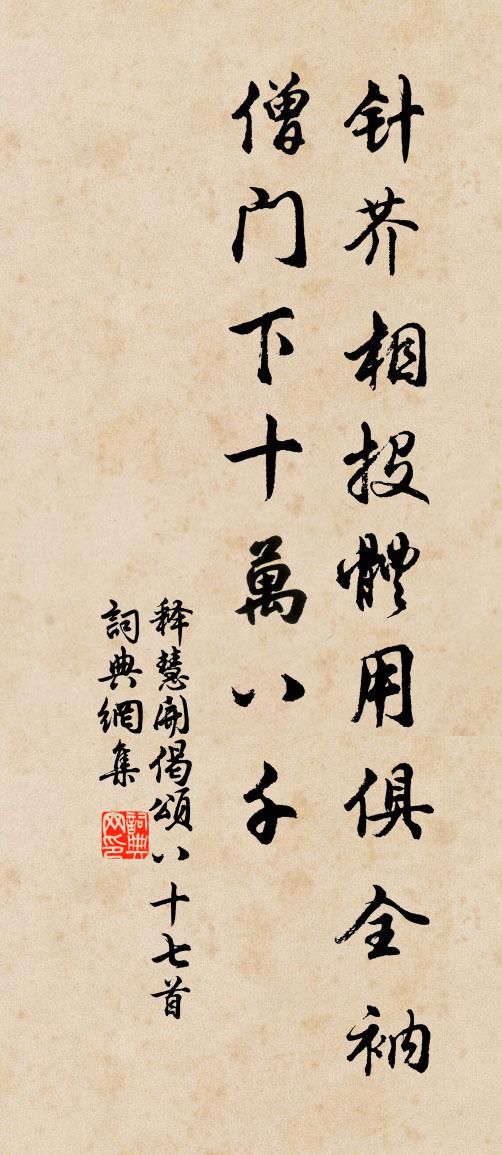 针芥相投體用俱全衲
僧门下十萬八千
释慧開偈頌八十七首
詞典網集
詞典网印